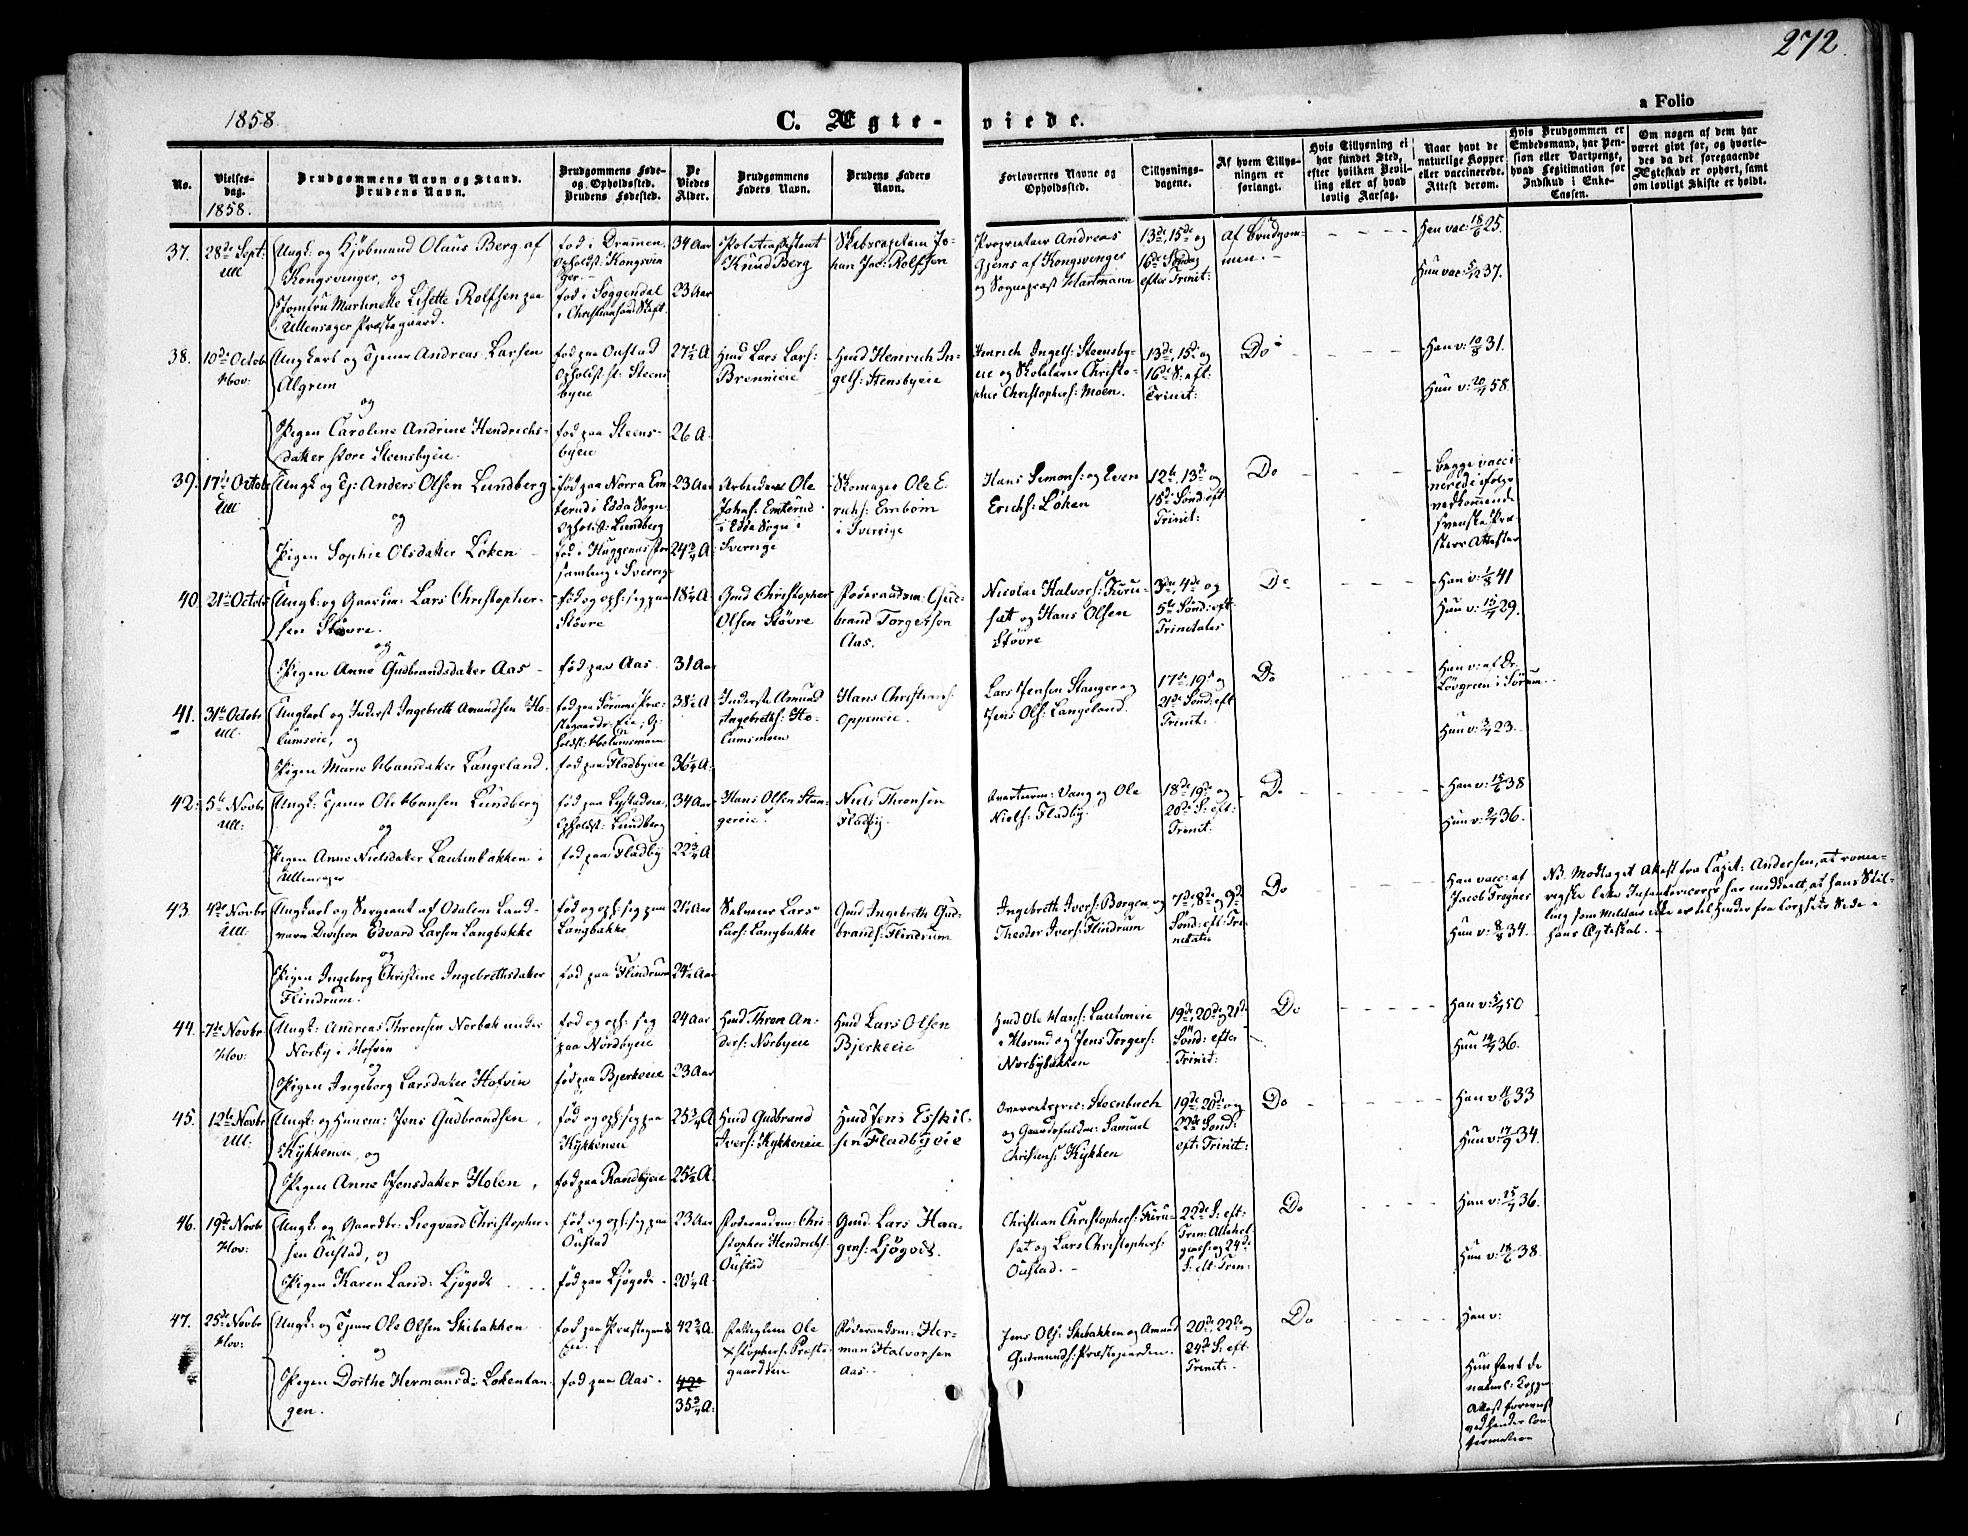 272
1858.
C. Ægte-
viede.
a Folio
No.
Vielses-
dag.
1858.
Brudgommens Navn og Stand.
Brudens Navn.
Brudgommens Føde-
og Opholdssted.
Brudens Fødested.
De
Viedes
Alder.
Brudgommens
Faders Navn.
Brudens Faders
Navn.
Forlovernes Navne og
Opholdssted.
Tillysnings-
dagene.
Af hvem Tillys-
ningen er
forlangt.
Hvis Tillysning ei
har fundet Sted,
efter hvilken Bevil-
ling eller af hvad
lovlig Aarsag.
Naar havt de
naturlige Kopper
eller vaccinerede.
Attest derom.
Hvis Brudgommen er
Embedsmand, har Pen-
sion eller Vartpenge,
hvad Legitimation for
Indskud i Enke-
Cassen.
Om nogen af dem har
været gift før, og hvorle-
des da det foregaaende
Ægteskab er ophørt, samt
om lovligt Skifte er holdt.
37.
28de Sept:
Ull
Ungk: og Kjøbmand Olaus Berg af
Kongsvinger, og
Jomfru Martinette Lisette Rolfsen paa
Ullensager Præstegaard.
fød i Drammen
Opholdst: Kongsvin
ger.
fød i Soggendal
i Christiansand Stift
34 Aar
23 Aar
Politiassistent
Knud Berg
Skibscapitain Jo-
han Jac: Rolfsen
Proprietair Andreas
Gjems af Kongsvinger
og Sognepræst Hartmann
13de, 15de og
16de Søndag
efter Trinit:
Af Brudgom-
men.
Han vac: 18/6 25.
Hun vac: 5/12 37.
38.
10de Octob
Hov:
Ungkarl og Tjener Andreas Larsen
Algrim
og
Pigen Caroline Andrine Hendrichs-
datter store Steensbyeie.
fød paa Oustad
Opholdst: st: Steens
byeie
fød paa Steens-
byeie
27½ A
26 A.
Huusm Lars Lars:
Brenneeie
Huusm Henrich In-
gels: Stensbyeie
Henrich Ingels: Steensby-
eie og Skolelærer Christo-
pher Christophers: Moen.
13de, 15de og
16de S: eft:
Trinit:
Do
Han v: 10/8 31.
Hun v: 20/4 58.
39.
17de Octob
Ull
Ungk og Tj: Anders Olsen Lundberg
og
Pigen Sophie Olsdatter Løken
fød paa Norra Em
terud i Edda Sogn
Opholdst: Lundberg
fød i Huggenæs
samling i Sverrig
23 Aar
24¾ A.
Arbeider Ole
Johns: Emterud
i Edda Sogn i
Sverige
Skomager Ole E-
richs: Embom
i Sverige
Hans Simons: og Even
Erichs: Løken
12te, 13de og
15de Sønd: eft
Trinit:
Do
Begge vacci-
nerede ifølge
vedkommende
svenske Præ-
sters Attester
40.
21de Octob
Ungk: og Gaardm: Lars Christopher-
sen Støvre.
og
Pigen Anne Gudbrandsdatter Aas
fød og oph: sig paa
Støvre
fød paa Aas.
18¼ A
31 Aar
Gmd Christopher
Olsen Støvre
Føderaadsm: Gud-
brand Torgersen
Aas.
Nicolai Halvors: Furu-
sæt og Hans Olsen
Støvre
3die, 4de og
5te Sønd: eft
Trinitatis
Do
Han v: 1/8 41
Hun v: 15/7 29.
41.
31te Octobr
Ull.
Ungkarl og Inderst Ingebreth Amundsen Ho-
lumseie, og
Pigen Marie Hansdatter Langeland.
fød paa Sørums Præ-
stegaards Eie; Op-
holdst: Holumsmoen
fød paa Fladbyeie
38½ A
36¼ A.
Inderst Amund
Ingebreths: Ho-
lumsmoen
Hans Christians:
Oppeneie.
Lars Jensen Stanger og
Jens Ols: Langeland.
17de, 19de og
21de Sønd: eft
Trinit:
Do
Han v: af Dr.
Løvgreen i Sørum.
Hun v: 3/7 23.
42.
5te Novbr
Ull:
Ungk: Tjener Ole Hansen Lundberg
og
Pigen Anne Nielsdatter Lautenbakken i
Ullensager
fød paa Lystaden,
Opholdst: Lundberg
fød paa Fladby
34 Aar
22¾ A
Hans Olsen Stan-
gereie.
Niels Thronsen
Fladby.
Qvarteerm: Vang og Ole
Niels: Fladby.
18de, 19de og
20de S: eft:
Trinit:
Do
Han v: 15/6 38
Hun v: 9/7 36.
43.
4de Novbr
Ull.
Ungkarl og Sergeant af Odalens Land-
værns Division Edvard Larsen Langbakke
og
Pigen Ingeborg Christine Ingebrethsdatter
Flindrum.
fød og oph: sig paa
Langbakke
fød paa Flindrum
24½ Aar
Selveier Lars
Lars: Langbakke
Gmd Ingebreth Gud-
brands: Flindrum
Ingebreth Ivers: Borgen og
Theodor Ivers: Flindrum
7de, 8de og 9de
Sønd: eft: Tri-
nitatis
Do
Han vacc: af
Jacob Trøgner
Hun v: 8/8 34.
NB. Modtaget Attest fra Capit: Andersen, at romе-
rigske lette Infantericorps har meddeelt, at hans Stil-
ling som Militair ikke er til Hinder fra Corpsets Side i
hans Ægteskab.
44.
7de Novbr
Hov:
Ungk: Andreas Thronsen Norbak under
Norby i Hofvin
og
Pigen Ingeborg Larsdatter Hofvin
fød og oph: sig
paa Nordbyeie
fød paa Bjerkeeie
24 Aar
23 Aar
Huusm Thron An-
ders: Norbyeie
Huusm Lars Olsen
Bjerkeeie
Huusm Ole Hans: Lauteneie
i Hovind og Jens Torgers:
Norbybakken
19de, 20de og 21de
Sønd: efter
Trinit:
Do
Han v: 5/7 50
Hun 14/7 36.
45.
12te Novbr
Ull:
Ungk: og Huusm: Jens Gudbrandsen
Kykkeneie, og
Pigen Anne Jensdatter Holen
fød og oph: sig paa
Kykkeneie
fød paa Randbyeie
25¾ A
25½ A.
Huusm Gudbrand
Ivers: Kykkeneie
Huusm Jens Eskil-
sen Fladbyeie
Overretspr: Steenbuch
og Gaardsfuldm: Samuel
Christens: Kykken
19de, 20de og
22de Sønd:
eft: Trinit:
Do
Han v: 4/6 33
Hun v: 17/9 34.
46.
19de Novbr
Hov:
Ungk: og Gaardbr: Siegvard Christopher-
sen Oustad, og
Pigen Karen Larsd: Ljøgodt
fød og oph: sig paa
Oustad
fød paa Ljøgodt
23 Aar
20¼ A.
Føderaadsm: Chri-
stopher Hendrichs:
Oustad
Gmd: Lars Haa-
gens: Ljøgodt.
Christian Christophers: Furu-
sæt og Lars Christophers:
Oustad.
22de S: eft:
Trin: Allehel-
gensd: og 24de
S: eft: Trin:
Do
Han v: 25/7 36.
Hun v: 18/6 38.
47.
25de Novbr
Hov:
Ungk: og Tjener Ole Olsen Skibakken
og
Pigen Dorthe Hermansd: Løkenhan
gen.
fød paa Præstegaards
Eie.
fød paa Aas.
42¾ A.
35¾ A:
Ole
Xstophers: Præste-
gaardseie
Føderaadsm: Her-
man Halvorsen
Aas.
Jens Ols: Skibakken og Amund
Gudmunds: Præstegaarden.
20de, 22de og
24de S: eft
Trinit:
Do
Han v:
Hun havt de
naturl: Kopper
Attest forevist
ved hendes Con-
firmation